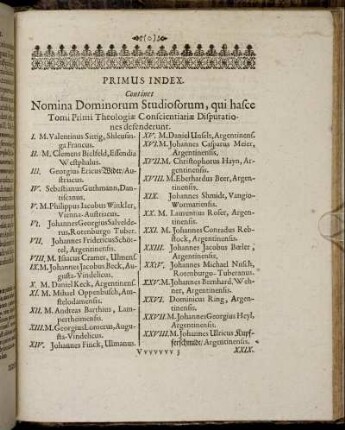 (o)
PRIMUS INDEX.
Continet
Nomina Dominorum Studiosorum, qui hasce
Tomi Primi Theologiæ Conscientiariæ Disputatio-
nes defenderunt.
I. M. Valentinus Sittig, Schleusin-
ga Francus.
II. M. Clemens Bielfeld, Essendia
Westphalus.
III. Georgius Ericus Austriacus.
IV. Sebastianus Guthmann, Dan-
niscanus.
V. M. Philippus Jacobus Winkler,
Vienna-Austriacus.
VI. Johannes Georgius
derus, Rotenburgo Tuber.
VII. Johannes Fridericus Schöt-
tel, Argentinensis.
VIII. M. Isaacus Cramer, Ulmens.
IX. M. Johannes Jacobus Beck, Au-
gusta-Vindelicus.
X. M. Daniel Keck, Argentinens.
XI. M. Michaël Oppenbusch, Am-
stelodamensis.
XII. M. Andreas Barthius, Lam-
perthemensis.
XIII. M. Georgius Lomerus, Augu-
sta-Vindelicus.
XIV. Johannes Finck, Ulmanus.
XV. M. Daniel Unselt, Argentinens.
XVI. M. Johannes Casparus Meier,
Argentinensis.
XVII. M. Christophorus Hayn, Ar-
gentinensis.
XVIII. M. Eberhardus Beer, Argen-
tinensis.
XIX. Johannes Schmidt, Vangio-
Wormatiensis.
XX. M. Laurentius Roser, Argen-
tinensis.
XXI. M. Johannes Conradus Reb-
stock, Argentinensis.
XXIII. Johannes Jacobus
Argentinensis.
XXIV. Johannes Michaël Nusch,
Rotenburgo-Tuberanus.
XXV. M. Johannes Bernhard, Weh-
ner, Argentinensis.
XXVI. Dominicus Ring, Argen-
tinensis.
XXVII. M. Johannes Georgius Heyl,
Argentinensis.
XXVIII. M. Johannes Ulricus Kupf-
ferschmidt, Argentinensis.
Vvvvvvv 3
XXIX.